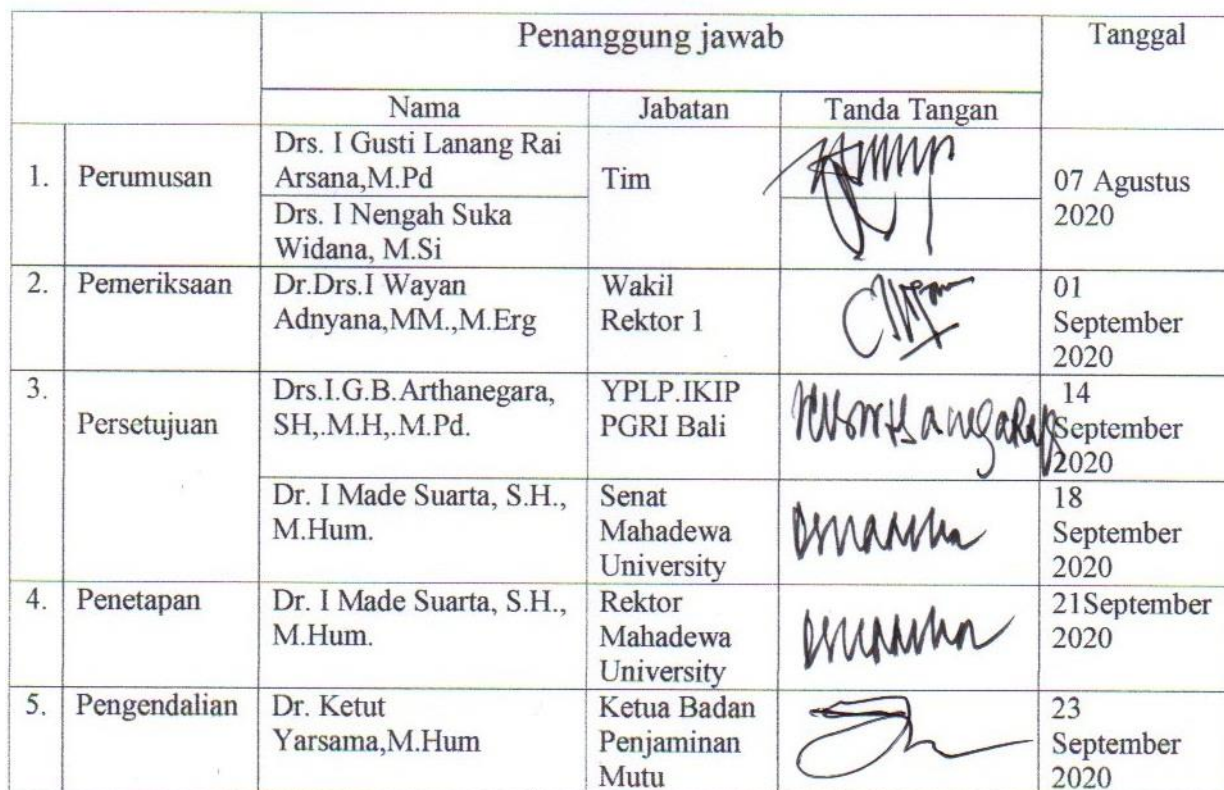 Penanggung jawab Tanggal
Nama Jabatan Tanda Tangan
1. Perumusan
Drs. I Gusti Lanang Rai
Arsana,M.Pd
Drs. I Nengah Suka
Widana, M.Si
Tim
07 Agustus
2020
2. Pemeriksaan
Dr.Drs.I Wayan
Adnyana,MM.,M.Erg
Wakil
Rektor 1
01
September
2020
3. Persetujuan
Drs.I.G.B.Arthanegara,
SH,.M.H,.M.Pd.
YPLP.IKIP
PGRI Bali
14
September
2020
Dr. I Made Suarta, S.H.,
M.Hum.
Senat
Mahadewa
University
18
September
2020
4. Penetapan
Dr. I Made Suarta, S.H.,
M.Hum.
Rektor
Mahadewa
University
21September
2020
5. Pengendalian
Dr. Ketut
Yarsama,M.Hum
Ketua Badan
Penjaminan
Mutu
23
September
2020